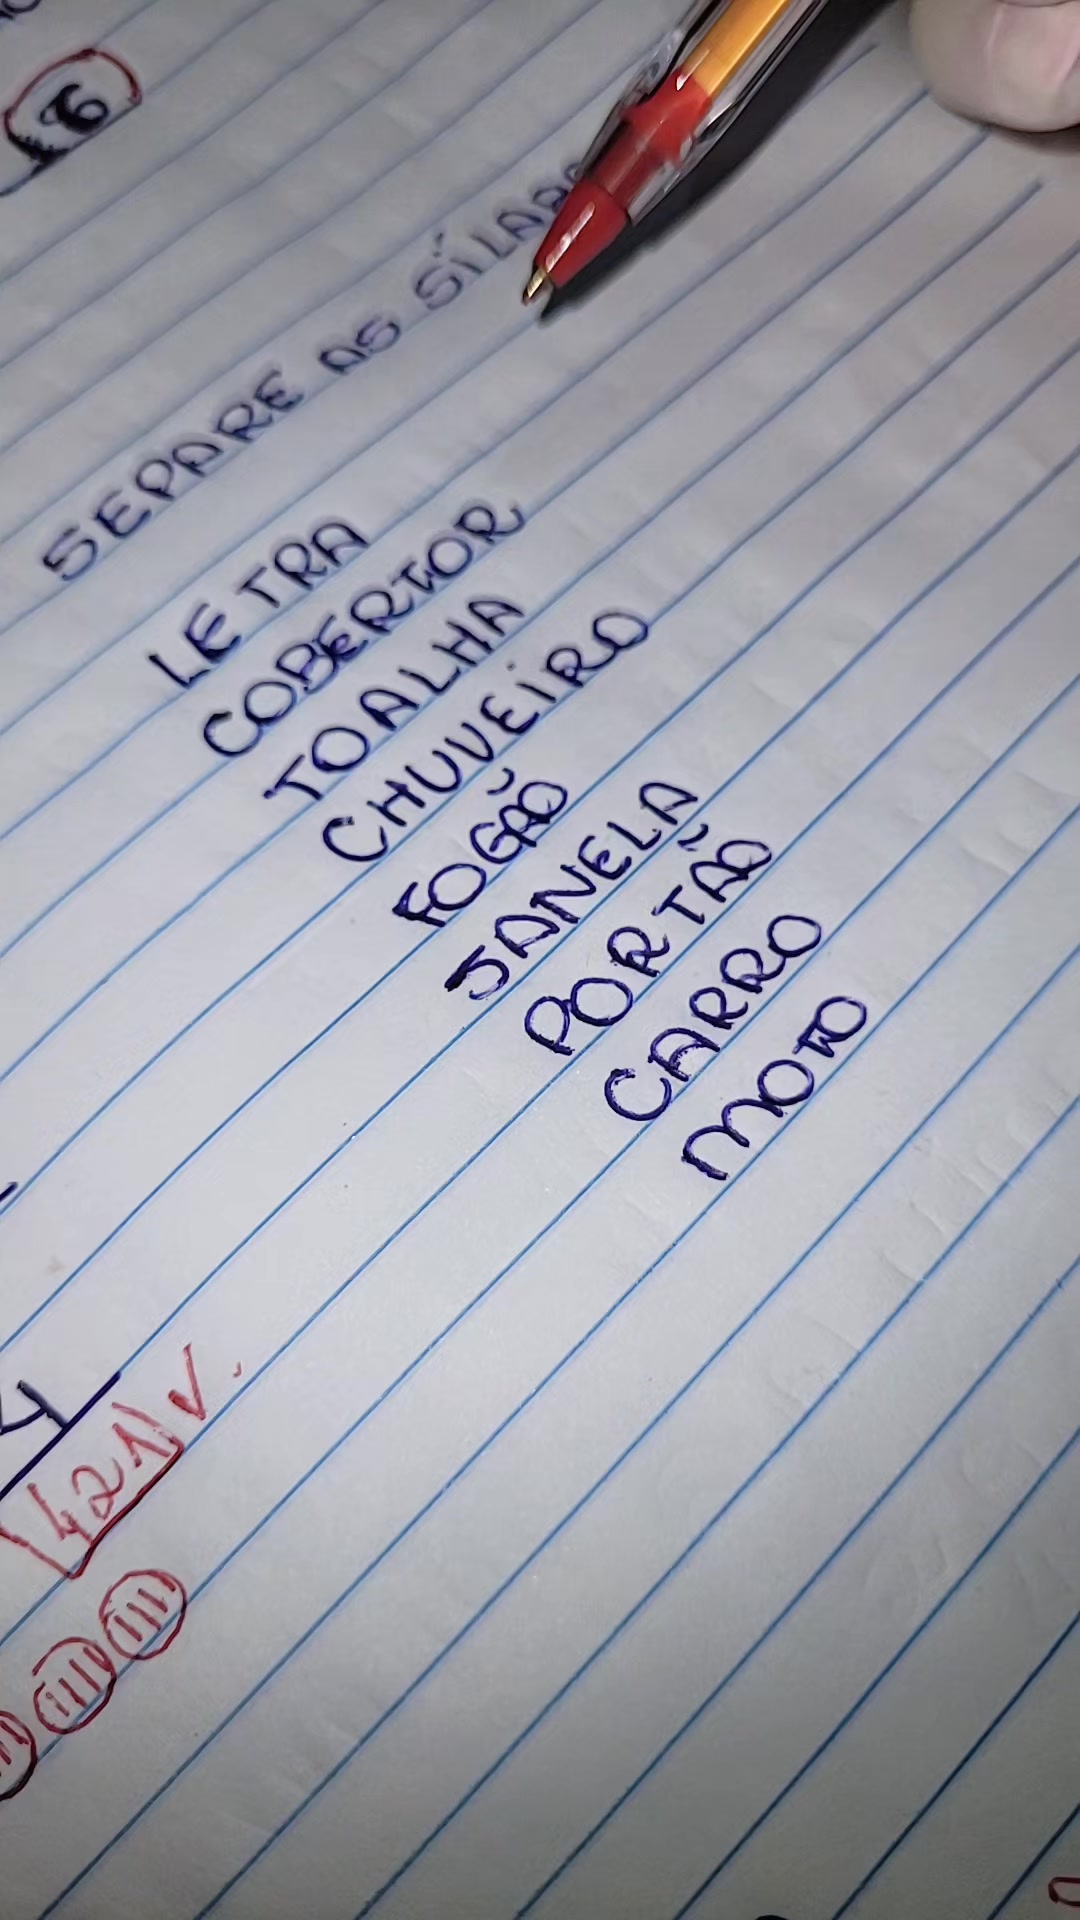 6
SEPARE AS SÍLABAS
LETRA
COBERTOR
TOALHA
CHUVEIRO
FOGÃO
JANELA
PORTÃO
CARRO
MOTO
421